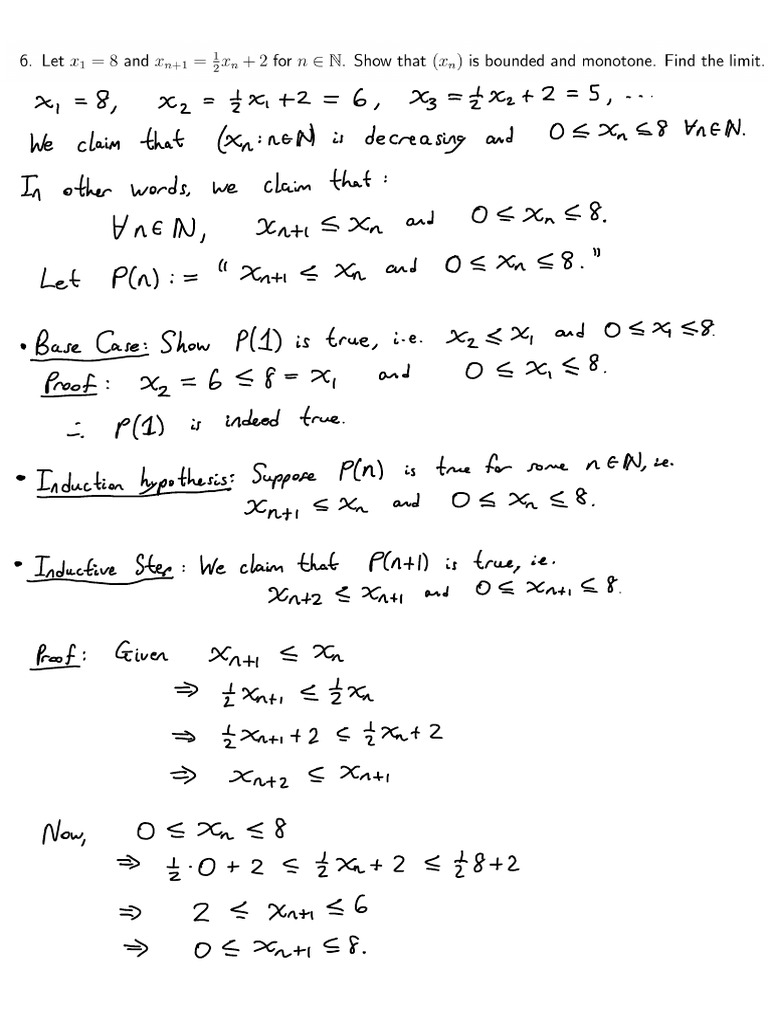 6. Let x₁ = 8 and xₙ₊₁ = ½xₙ + 2 for n ∈ ℕ. Show that (xₙ) is bounded and monotone. Find the limit.
x₁ = 8, x₂ = ½x₁ + 2 = 6, x₃ = ½x₂ + 2 = 5, ...
We claim that (xₙ : n∈ℕ) is decreasing and 0 ≤ xₙ ≤ 8 ∀n∈ℕ.
In other words, we claim that :
∀n∈ℕ, xₙ₊₁ ≤ xₙ and 0 ≤ xₙ ≤ 8.
Let P(n) := "xₙ₊₁ ≤ xₙ and 0 ≤ xₙ ≤ 8."
• Base Case: Show P(1) is true, i.e. x₂ ≤ x₁ and 0 ≤ x₁ ≤ 8.
Proof : x₂ = 6 ≤ 8 = x₁ and 0 ≤ x₁ ≤ 8.
∴ P(1) is indeed true.
• Induction hypothesis: Suppose P(n) is true for some n∈ℕ, i.e.
xₙ₊₁ ≤ xₙ and 0 ≤ xₙ ≤ 8.
• Inductive Step : We claim that P(n+1) is true, i.e.
xₙ₊₂ ≤ xₙ₊₁ and 0 ≤ xₙ₊₁ ≤ 8.
Proof : Given xₙ₊₁ ≤ xₙ
⇒ ½xₙ₊₁ ≤ ½xₙ
⇒ ½xₙ₊₁ + 2 ≤ ½xₙ + 2
⇒ xₙ₊₂ ≤ xₙ₊₁
Now, 0 ≤ xₙ ≤ 8
⇒ ½·0 + 2 ≤ ½xₙ + 2 ≤ ½8 + 2
⇒ 2 ≤ xₙ₊₁ ≤ 6
⇒ 0 ≤ xₙ₊₁ ≤ 8.